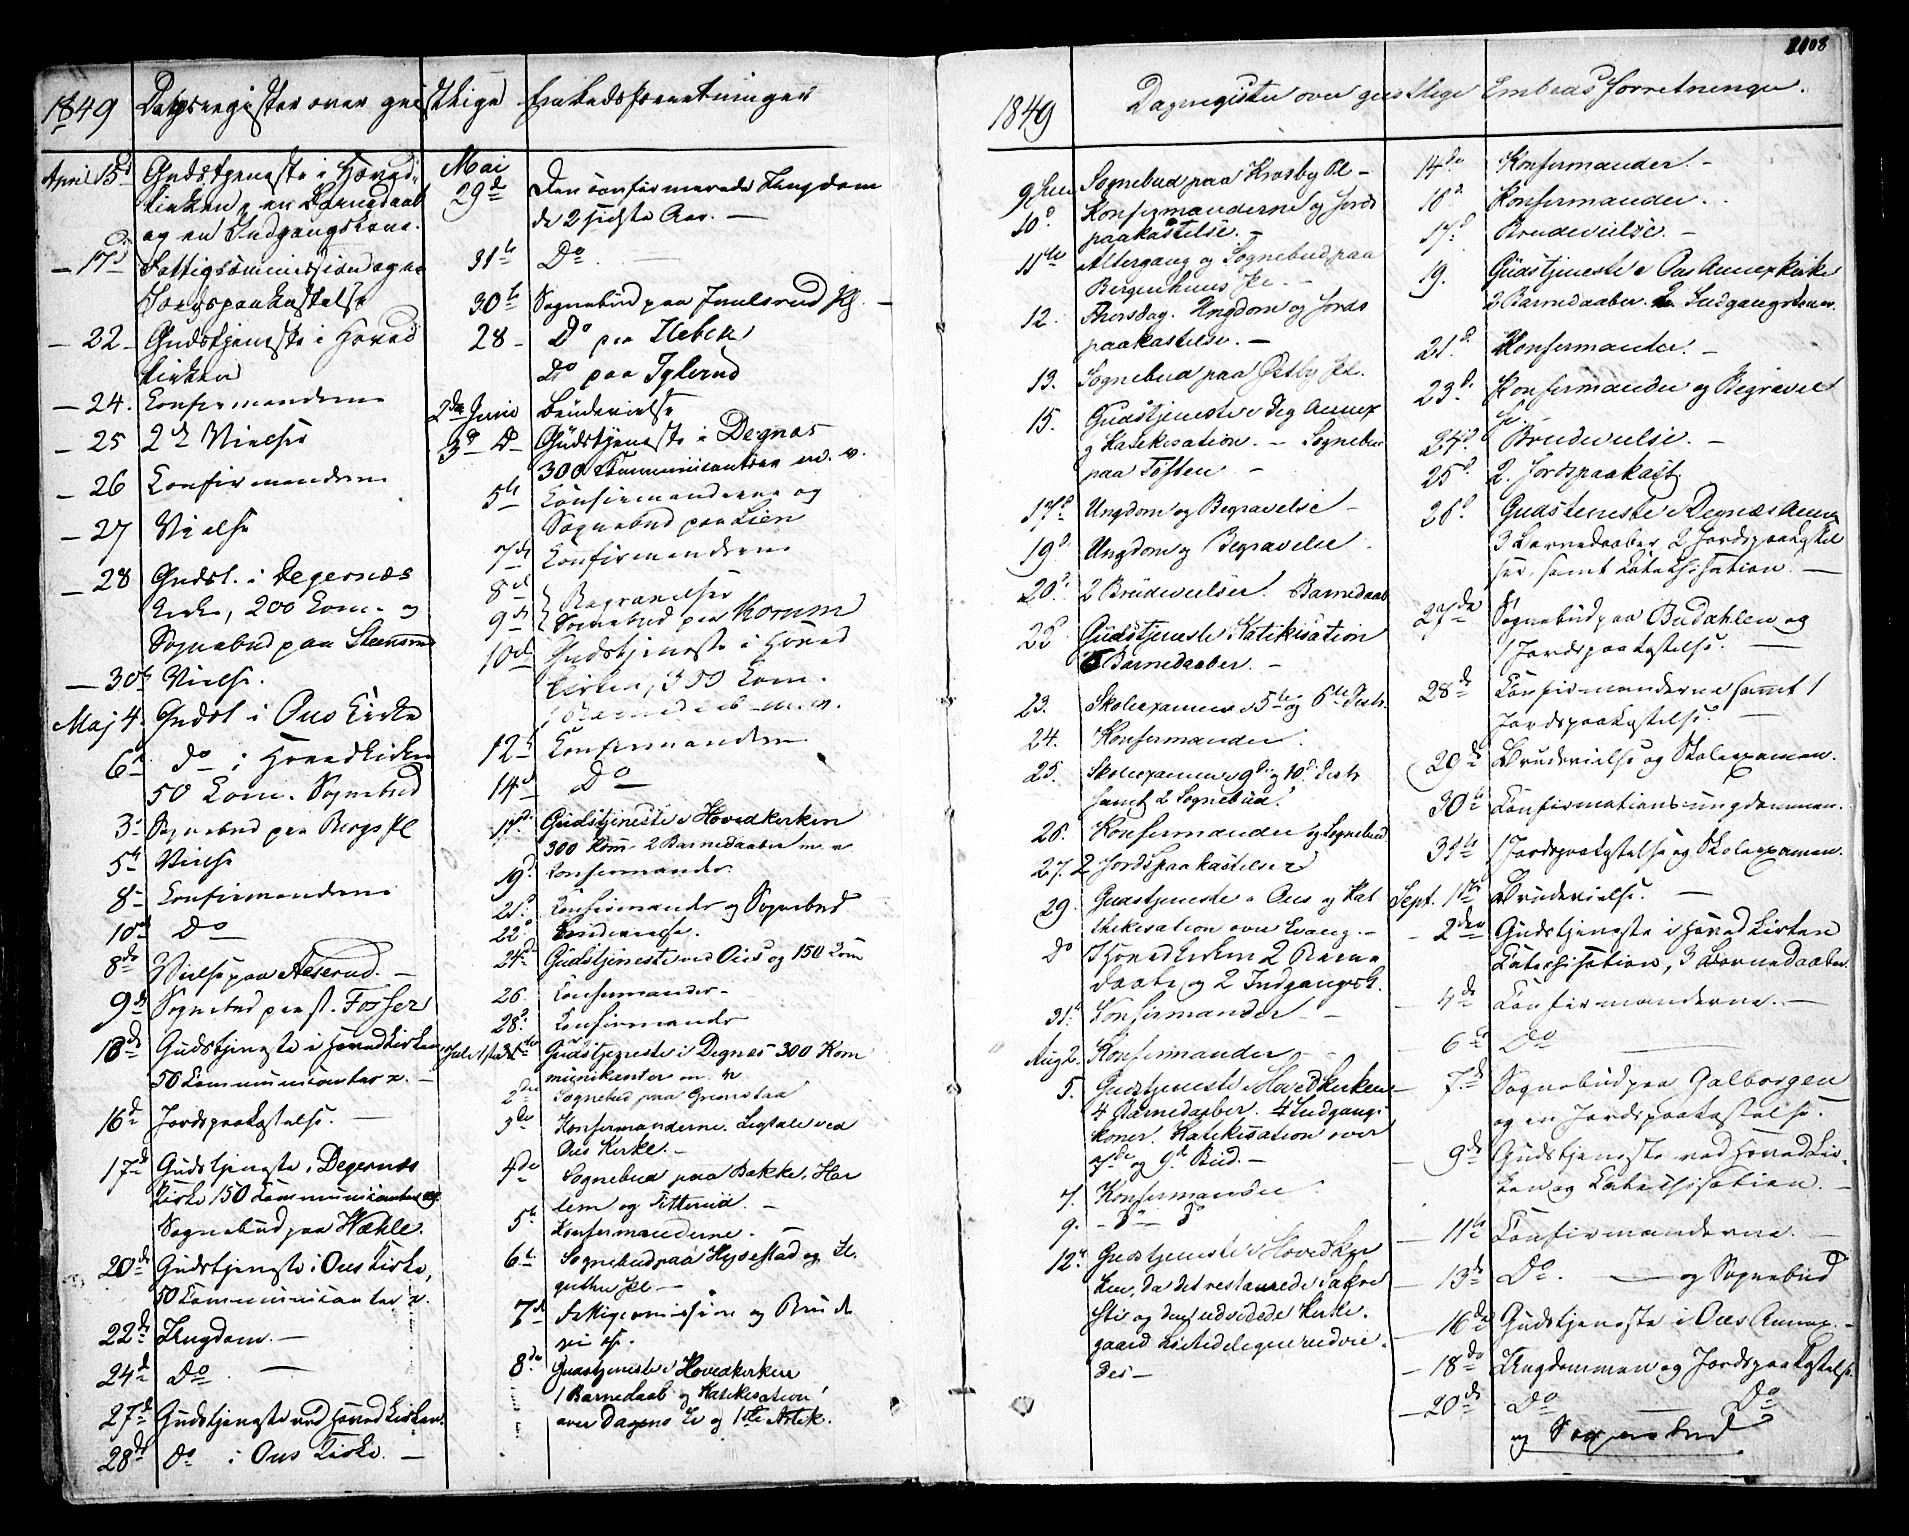 1849 Dagsregister over geistlige Embedsforretninger
April 15d Gudstjeneste i Hoved-
kirken, en Barnedaab
og en Indgangskone.
— 17d Fattigcommission og en
Jordspaakastelse
— 22 — Gudstjeneste i Hoved
kirken
— 24. Confirmanderne
— 25 2d Vielser
— 26 Confirmanderne
— 27 Vielse
— 28 Gudst. i Degernæs
Kirke, 200 Com. og
Sognebud paa Steensrud
— 30te Vielse.
Maj 4. Gudst i Ous Kirke
6te do i Hovedkirken
50 Com. Sognebud
3d Sognebud paa Bergs Pl
5te Vielse
8de Confirmanderne
10de Do
8de Vielse paa Aeserud. —
9de Sognebud paa st. Fosser
13de Gudstjeneste i Hovedkirken
50 Communicanter x. —
16de Jordspaakastelse. —
17de Gudstjeneste i Degernæs
Kirke 150 Communicanter og
Sognebud paa Hækle.
20de Gudstjeneste i Ous Kirke,
50 Communicanter x.
22de Ungdom. —
24de Do. —
27de Gudstjeneste ved Hovedkirken.
28de Do i Ous Kirke. —
Mai
29de Den confirmerede Ungdom
de 2 sidste Aar. —
31te Do
30te Sognebud paa Juulsrud Pl. —
28 — Do paa Ileben
do paa Iglerud
2den Juni Brudevielse
3die D Gudstjeneste i Degnes
300 Communicanter m. v.
5te Confirmanderne og
Sognebud paa Lien
7de Confirmanderne
8de Begravelser
9de Sognebud paa Korum
10de Gudstjeneste i Hoved
kirken, 350 Com.
1 Barnedaab m. v.
12te Confirmanderne
14de Do
17d. Gudstjeneste i Hovedkirken
300 Kom 2 Barnedaaber m. v
19d Confirmander.
21d Confirmander og Sognebud
22d Brudevielse.
24de Gudstjeneste ved Ous og 150 Com
26. Confirmander —
28d. Confirmander
Juli 1ste Gudstjeneste i Degnes 300 Kom
munikanter m. v
2den Sognebud paa Grønstad
3die Konfermanderne. Ligtale ved
Ous Kirke. —
4de Sognebud paa Bakke, Har
lem og Titterud. —
5te Konfermanderne.
6te Sognebud paa Hysestad og
Pl —
7de Fattigcomission og Brude
vielse.
8de Gudstjeneste i Hovedkirken
1 Barnedaab og Katekisation
over Dagens Ev og 1ste Artik.
1108
1849 Dagregister over geistlige Embedsforretninger.
9 Juli Sognebud paa Krosby Pl —
10d Konfermanderne og Jords
paakastelse. —
11te Altergang og Sognebud paa
Bergenhuus Pl. —
12. Thorsdag. Ungdom og Jords
paakastelse. —
13. Sognebud paa Østby Pl.
15. Gudstjeneste i Deg Annex
og Katekisation. — Sognebud
paa Toften —
17d Ungdom og Begravelse —
19d. Ungdom og Begravelse.
20d. 2 Brudevielser. Barnedaab
22d Gudstjeneste Katikisation
5 Barnedaaber. —
23. Skoleexamen i 5te og 6te Distr.
24. Konfermander.
25. Skoleexamen i 9de og 10d Distr
samt 2 Sognebud.
26. Konfermander og Sognebud
27. 2 Jordspaakastelser
29. Gudstjeneste i Ous og Kat
thekisation over Evang. —
Do I Hovedkirken 2 Barne
daabe og 2 Indgangsk.
31t. Konfirmander —
Aug 2. Konfermander —
5. Gudstjeneste i Hovedkirken
4 Barnedaaber. 4 Indgangs-
koner. Katekisation over
7de og 9de Bud. —
7. Konfermander.
9. — D — D
12te Gudstjeneste i Hovedkir
ken, da det restaurede Sakri
sti og den udvidede Kirke-
gaard høitideligen indvie
des —
14de Konfermander. —
16d. Konfermander.
17d Brudevielse. —
19. Gudstjeneste i Ous Annexkirke
2 Barnedaaber. 2 Indgangskoner.
21d. Konfermander. —
23d. Konfermander og Begravel
se. —
24d Brudevielse. —
25d 2. Jordspaakast.
26d Gudsteneste i Degnæs Annex
3 Barnedaaber, 2 Jordspaakastel
ser, samt Catechisation. —
27de Sognebud paa Budahlen og
1 Jordspaakastelse. —
28de Confirmanderne samt 1
Jordspaakastelse. —
29de Brudevielse og Skoleexamen.
30te Confirmationsungdommen.
31te 1 Jordspaakastelse og Skoleexamen.
Sept. 1ste Brudevielse. —
— 2den Gudstjeneste i Hovedkirken
Catechisation, 3 Barnedaaber.
— 4de Confirmanderne. —
6te Do —
— 7de Sognebud paa Galborgen
og en Jordspaakastelse.
— 9de Gudstjeneste ved Hovedkir-
ken og Catechisation. —
— 11te Confirmanderne. —
— 13de Do. — og Sognebud
— 16de Gudstjeneste i Ous Annex. —
— 18de Ungdommen og Jordspaakastelse.
— 20de Do — Do
og Sognebud